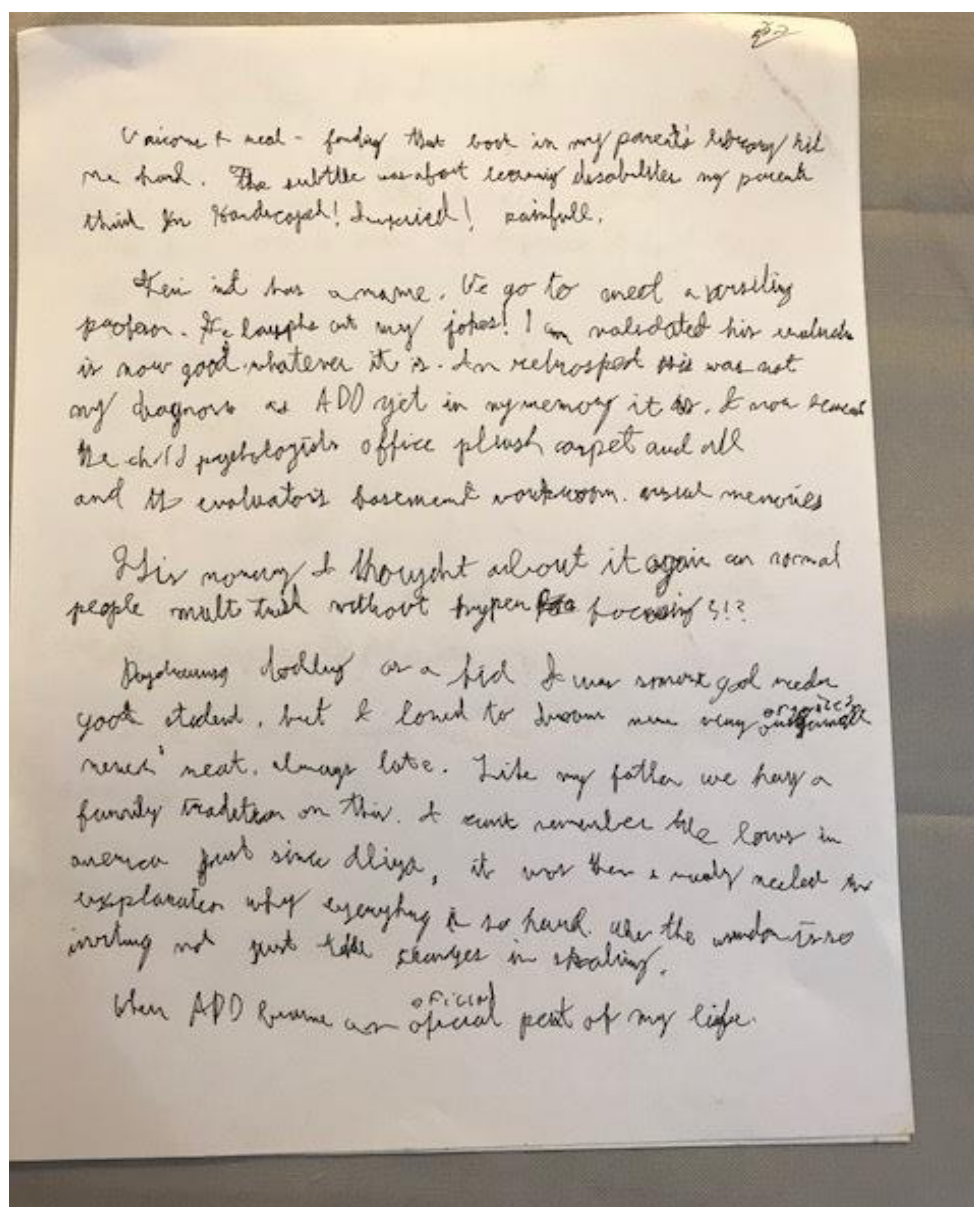 meal - finding that book in my parent's library hit
me hard. The subtitle was about learning disabilities my parents
think Im Handicaped! ! painfull.
it has a name. We go to meet a visiting
profesor. He laughs at my jokes! I am validated his
is now good whatever it is. In retrospect this was not
my diagnosis as ADD yet in my memory it is. I now
the child psychologists office plush carpet and all
and the evaluators basement workroom. visual memories
This I thought about it again can normal
people multi task without hyper focusing?!?
as a kid I was smart good reader
good student, but I loved to never very
never neat. always late. Like my father we have a
family tradition on this. I cant remember the in
america just since Aliya, it was then I needed an
explanation why everything is so hard. the window is so
inviting not just the changes in .
When ADD became an oficial oficial part of my life.